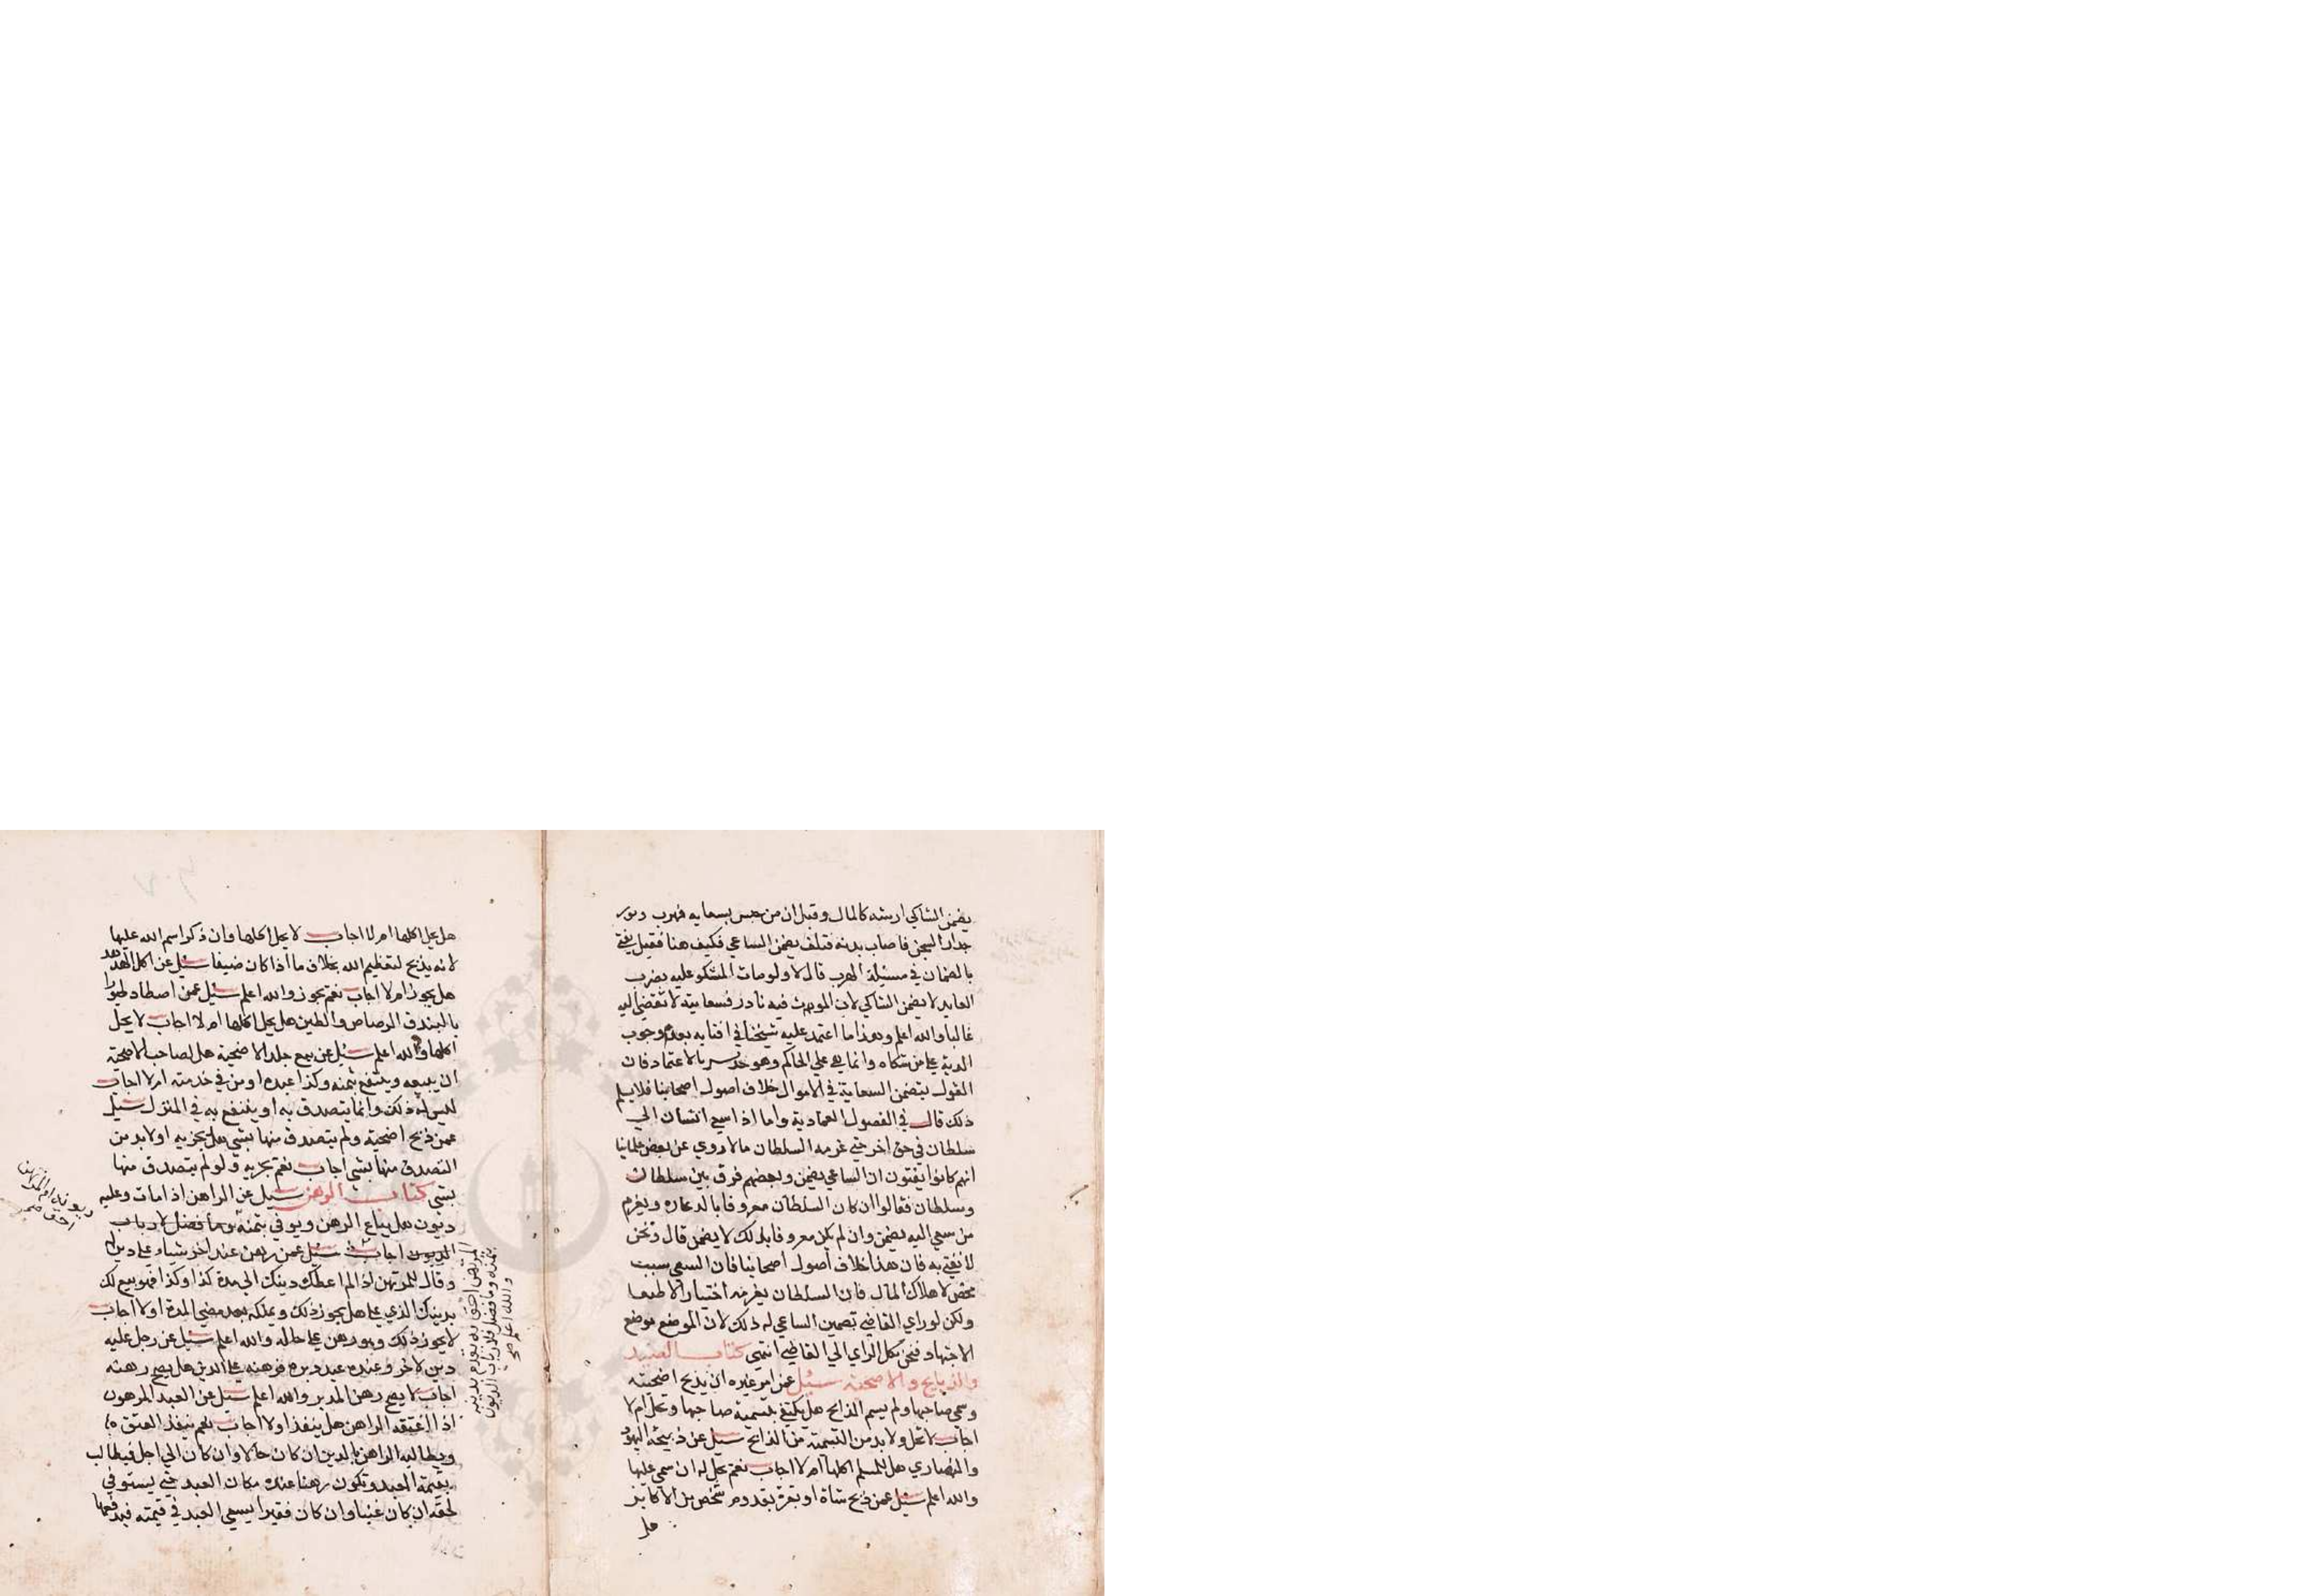 يضمن الشاكي ارشه كالمال وقيل ان من حبس بسعايه فهرب وتسور
جدار السجن فاصاب بدنه فتلف يضمن الساعي فكيف هنا فقيل يفتي
بالضمان في مسئلة الهرب قال لا ولو مات المشكو عليه بضرب
العايد لا يضمن الشاكي لان الموت فيه نادر فسعايته لا تفضي اليه
غالبا والله اعلم وهذا ما اعتمد عليه شيخنا في افتايه بعدم وجوب
الدية على من شكاه وانما هي على الحاكم وهو جدير بالاعتماد فان
القول بتضمن السعاية في الاموال خلاف اصول اصحابنا فلا يسلم
ذلك قال في الفصول العمادية واما اذا سعي انسان الي
سلطان في حق اخر حتي غرمه السلطان مالا روي عن بعض علمائنا
انهم كانوا يفتون ان الساعي يضمن وبعضهم فرق بين سلطان
وسلطان فقالوا ان كان السلطان معروفا بالدعاره ويغرم
من سعي اليه يضمن وان لم يكن معروفا بذلك لا يضمن قال ونحن
لا نفتي به فان هذا خلاف اصول اصحابنا فان السعي سبب
محض لاهلاك المال فان السلطان يغرمه اختيارا لا طبعا
ولكن لو راي القاضي تضمين الساعي له ذلك لان الموضع موضع
الاجتهاد فنحن نكل الراي الي القاضي انتهي كتاب الصيد
والذبايح والاضحية سئل عمن امر غيره ان يذبح اضحيته
وسمي صاحبها ولم يسم الذابح هل يكتفي بتسمية صاحبها وتحل ام لا
اجاب لا تحل ولا بد من التسمية من الذابح سئل عن ذبيحة اليهود
والنصاري هل للمسلم اكلها ام لا اجاب نعم تحل له ان سمي عليها
والله اعلم سئل عمن ذبح شاة او بقرة بقدوم شخص من الاكابر
هل
هل يحل اكلها ام لا اجاب لا يحل اكلها وان ذكر اسم الله عليها
لانه يذبح لتعظيم الله بخلاف ما اذا كان ضيفا سئل عن اكل الهدهد
هل يجوز ام لا اجاب نعم يجوز والله اعلم سئل عمن اصطاد طيورا
بالبندق الرصاص والطين هل يحل اكلها ام لا اجاب لا يحل
اكلها والله اعلم سئل عن بيع جلد الاضحية هل لصاحب الاضحية
ان يبيعه وينتفع بثمنه وكذا عبده او من في خدمته ام لا اجاب
ليس له ذلك وانما يتصدق به او ينتفع به في المنزل سئل
عمن ذبح اضحيته ولم يتصدق منها بشي هل يجزيه او لا بد من
التصدق منها بشي اجاب نعم تجزيه ولو لم يتصدق منها
بشي كتاب الرهن سئل عن الراهن اذا مات وعليه
ديون هل يباع الرهن ويوفي بثمنه وما فضل لارباب
الديون اجاب سئل عمن رهن عند اخر شيا على دين له
وقال للمرتهن اذا لم اعطك دينك الي مدة كذا وكذا فهو بيع لك
بدينك الذي على هل يجوز ذلك ويملكه بعد مضي المدة اولا اجاب
لا يجوز ذلك وهو رهن على حاله والله اعلم سئل عن رجل عليه
دين لاخر وعنده عبد دبره فرهنه على الدين هل يصح رهنه
اجاب لا يصح رهن المدبر والله اعلم سئل عن العبد المرهون
اذا اعتقه الراهن هل ينفذ اولا اجاب نعم ينفذ العتق
ويطالب الراهن بالدين ان كان حالا وان كان الي اجل فيطالب
بقيمة العبد وتكون رهنا عنده مكان العبد حتي يستوفي
لحقه ان كان غنيا وان كان فقيرا يسعي العبد في قيمته فيدفعها
المرتهن احق به
بثمنه وما فضل فلارباب الديون
والله اعلم صح